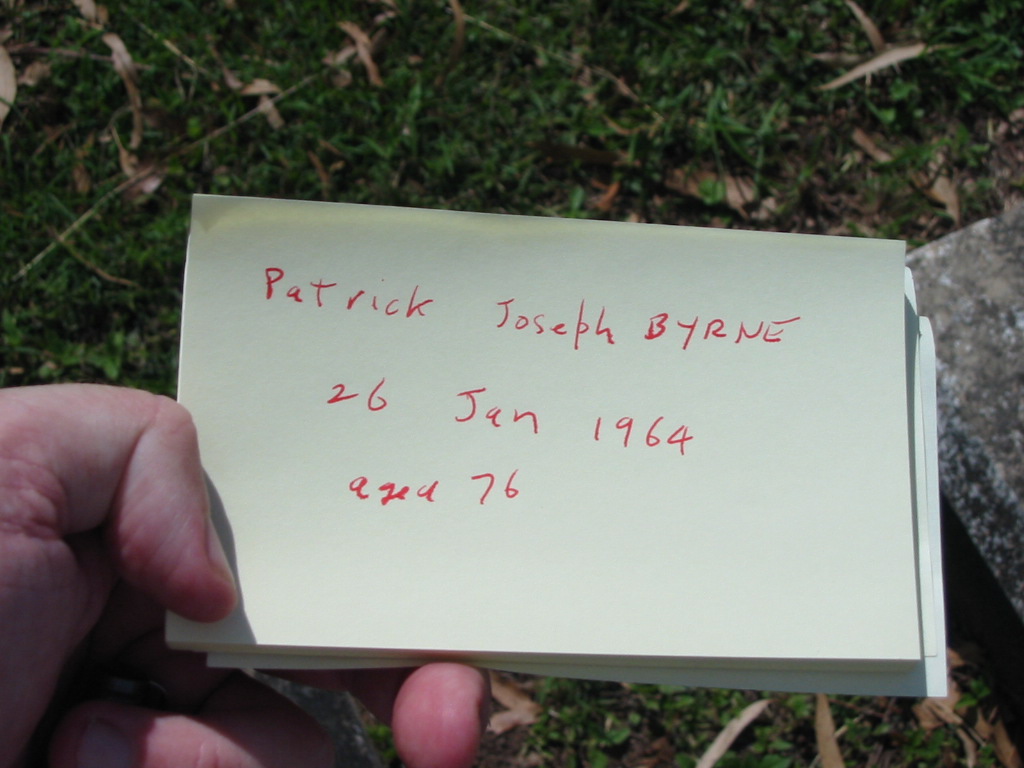 Patrick Joseph BYRNE
26 Jan 1964
aged 76